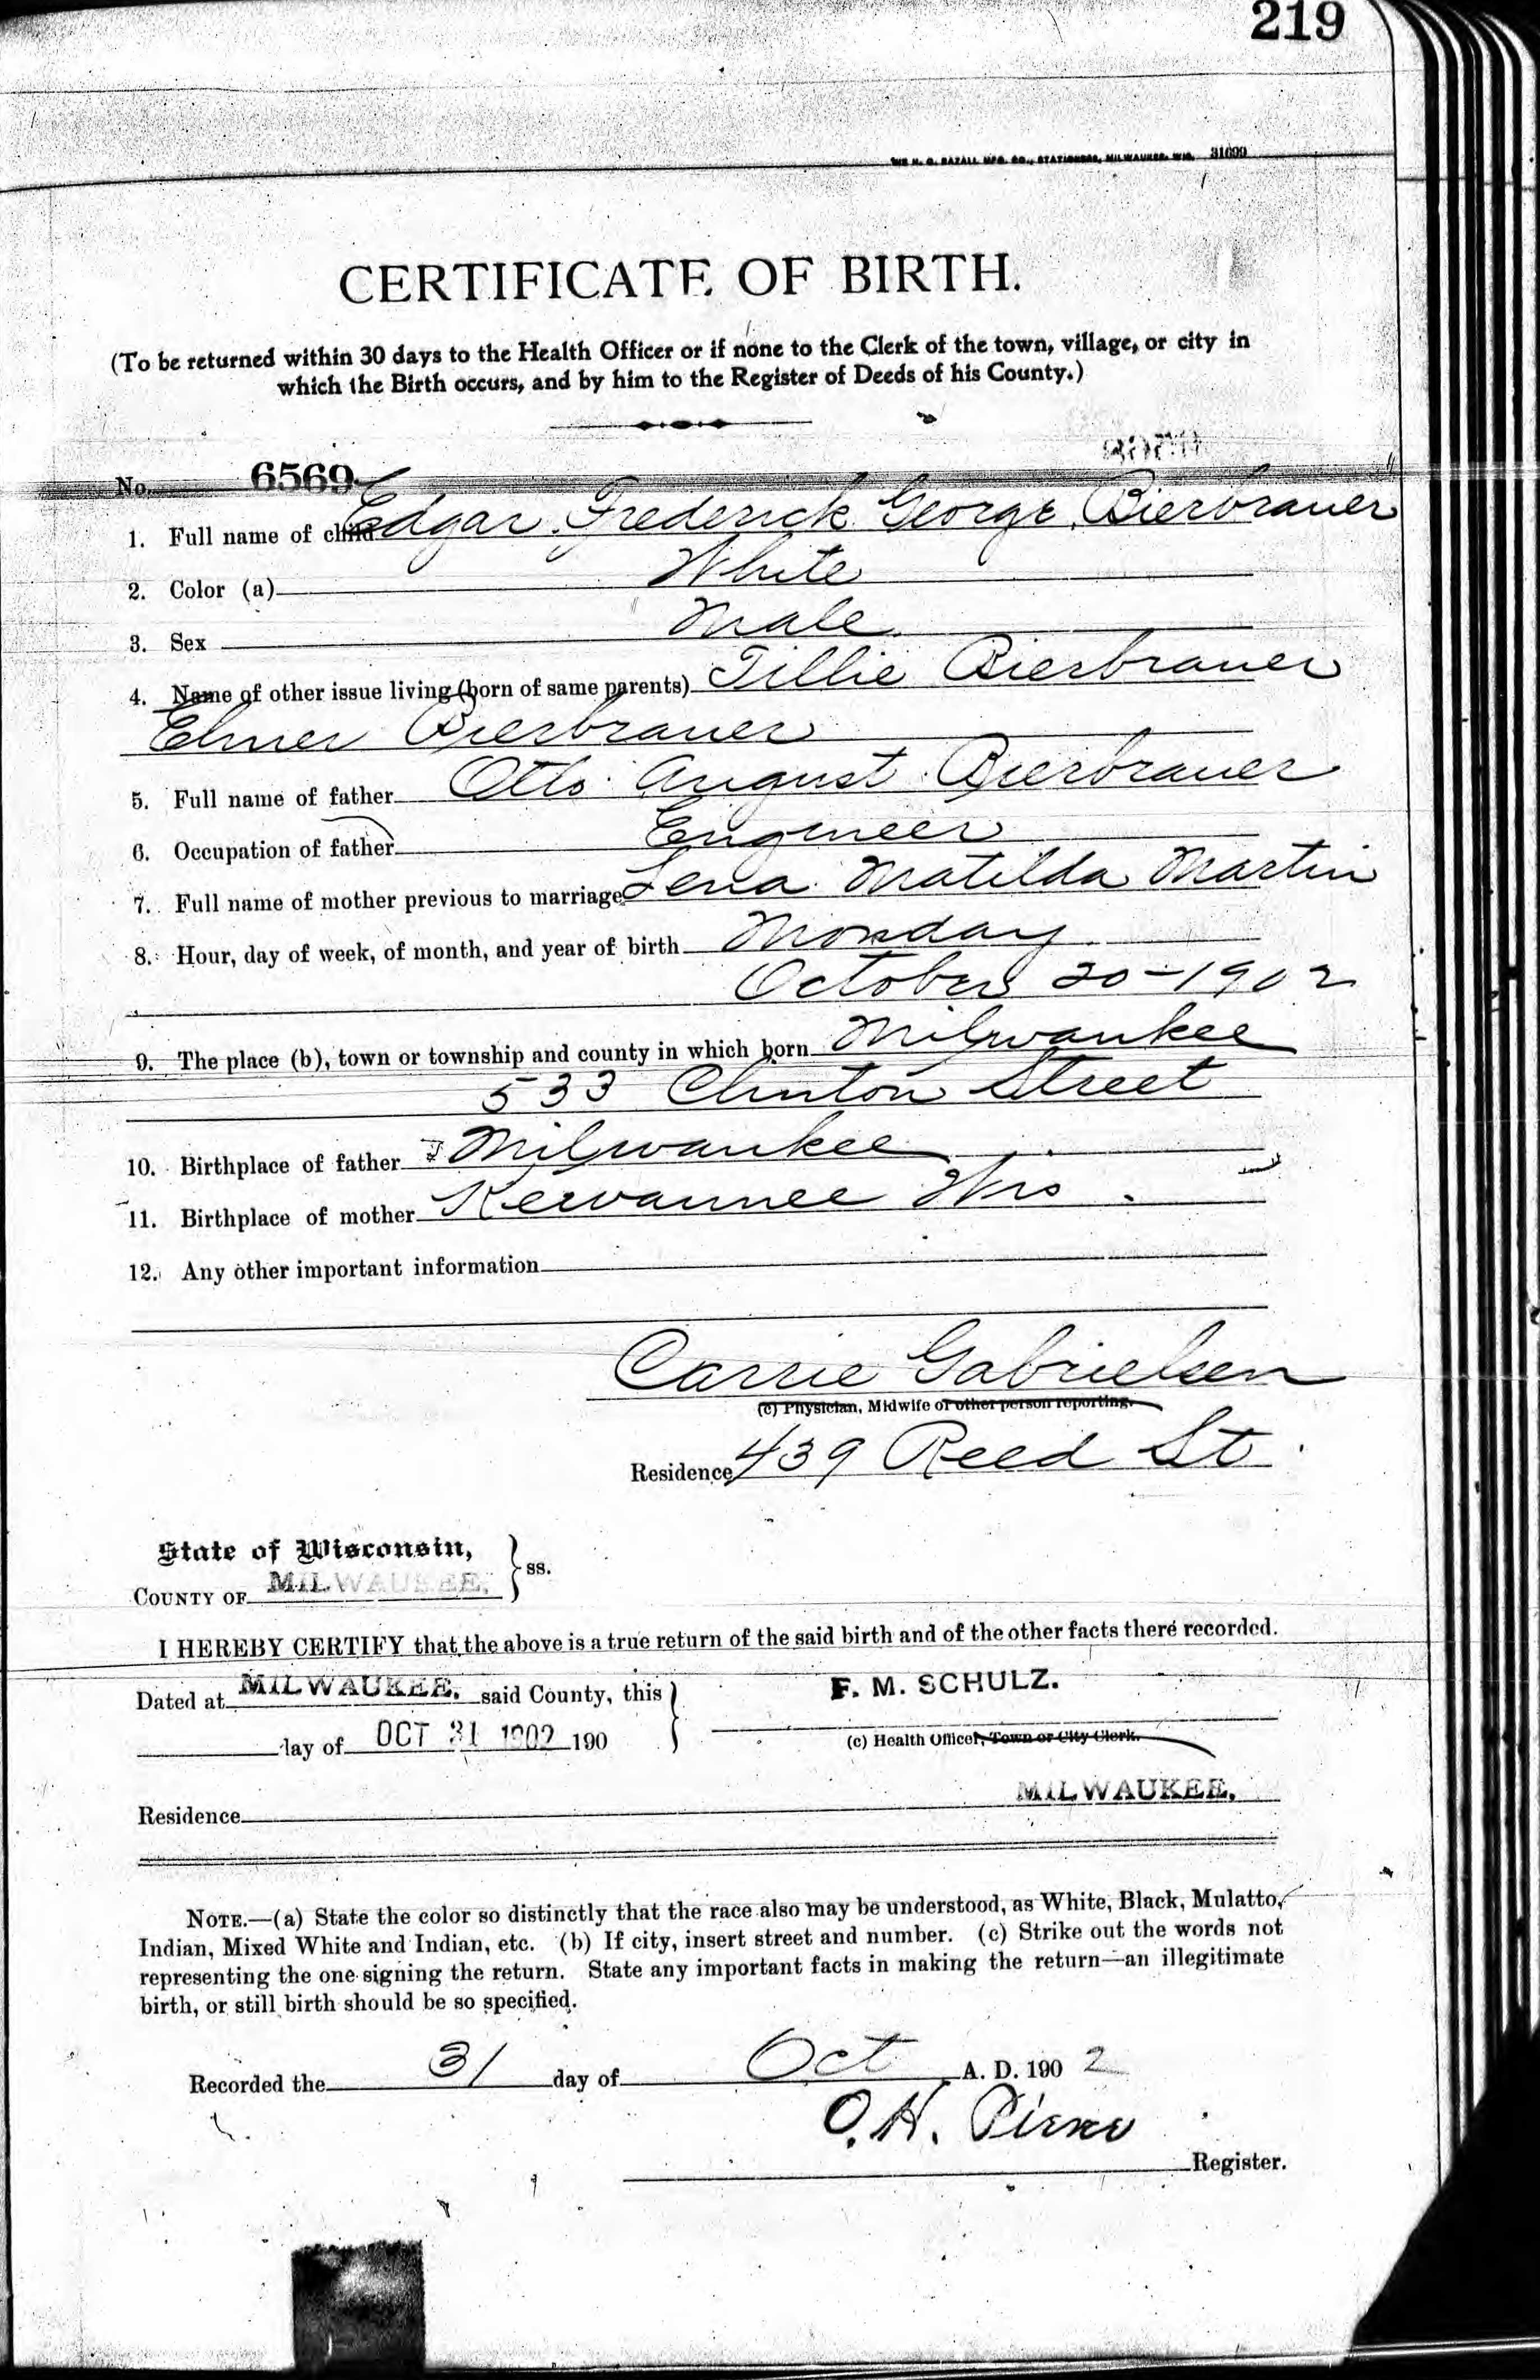 219
THE H. G. RAZALL MFG. CO., STATIONERS, MILWAUKEE, WIS. 31699
CERTIFICATE OF BIRTH.
(To be returned within 30 days to the Health Officer or if none to the Clerk of the town, village, or city in
which the Birth occurs, and by him to the Register of Deeds of his County.)
No. 6569
1. Full name of child Edgar Frederick George Bierbrauer
2. Color (a) White
3. Sex Male
4. Name of other issue living (born of same parents) Tillie Bierbrauer
Elmer Bierbrauer
5. Full name of father Otto August Bierbrauer
6. Occupation of father Engineer
7. Full name of mother previous to marriage Lena Matilda Martin
8. Hour, day of week, of month, and year of birth Monday
October 20-1902
9. The place (b), town or township and county in which born Milwaukee
533 Clinton Street
10. Birthplace of father Milwaukee
11. Birthplace of mother Kewaunee Wis
12. Any other important information
Carrie Gabrielsen
(c) Physician, Midwife or other person reporting.
Residence 439 Reed St
State of Wisconsin,
COUNTY OF MILWAUKEE. } ss.
I HEREBY CERTIFY that the above is a true return of the said birth and of the other facts there recorded.
Dated at MILWAUKEE, said County, this F. M. SCHULZ.
day of OCT 31 1902 190 (c) Health Officer, Town or City Clerk.
MILWAUKEE.
Residence
NOTE.—(a) State the color so distinctly that the race also may be understood, as White, Black, Mulatto,
Indian, Mixed White and Indian, etc. (b) If city, insert street and number. (c) Strike out the words not
representing the one signing the return. State any important facts in making the return—an illegitimate
birth, or still birth should be so specified.
Recorded the 31 day of Oct A. D. 1902
O. H.
Register.